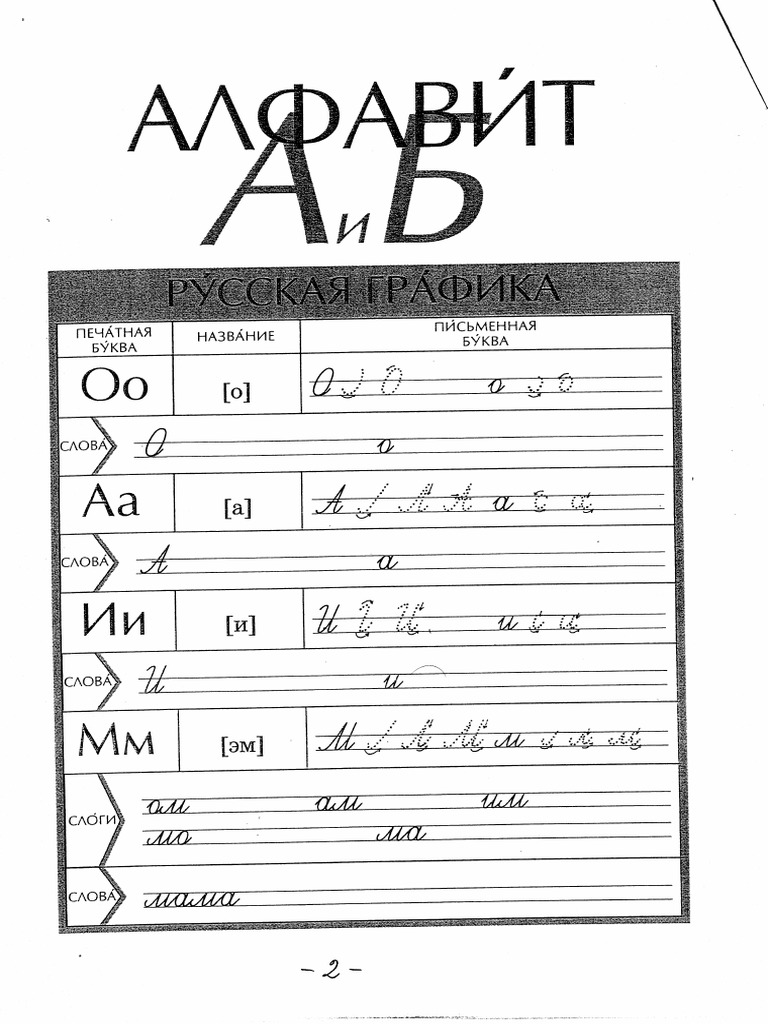 АЛФАВИ́Т
А и Б
РУ́ССКАЯ ГРА́ФИКА
ПЕЧА́ТНАЯ БУ́КВА НАЗВА́НИЕ ПИ́СЬМЕННАЯ БУ́КВА
Оо [о] О О о о
СЛОВА́ О о
Аа [а] А А а а
СЛОВА́ А а
Ии [и] И И и и
СЛОВА́ И и
Мм [эм] М М м м
СЛО́ГИ ом ам им
мо ма
СЛОВА́ мама
- 2 -